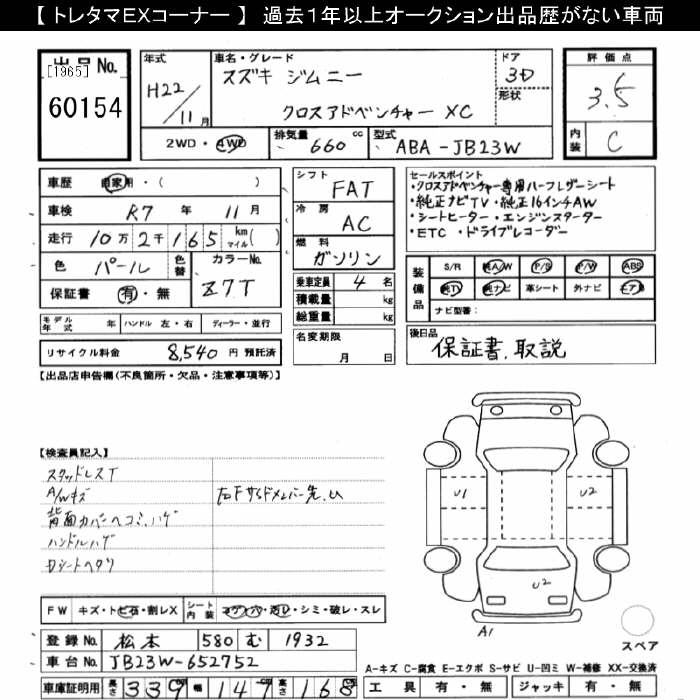 【 トレタマEXコーナー 】 過去1年以上オークション出品歴がない車両
出品No.
[1965]
60154
年式
H22/11月
車名・グレード
スズキ ジムニー
クロスアドベンチャー XC
ドア
3D
形状
評価点
3.5
内装
C
2WD・4WD
排気量 660 cc
型式 ABA-JB23W
車歴 自家用・( )
車検 R7 年 11 月
走行 10万2千165 km マイル( )
色 パール 色替
カラーNo.
Z7T
保証書 有・無
シフト
FAT
冷房
AC
燃料
ガソリン
乗車定員 4 名
積載量 kg
総重量 kg
名変期限
月 日
セールスポイント
・クロスアドベンチャー専用ハーフレザーシート
・純正ナビTV・純正16インチAW
・シートヒーター・エンジンスターター
・ETC・ドライブレコーダー
装備品
S/R 純A/W P/S P/W ABS
純TV 純ナビ 革シート 外ナビ エアB
ナビ型番:
モデル年式 年 ハンドル 左・右 ディーラー・並行
リサイクル料金 8,540 円 預託済
後日品
保証書、取説
【出品店申告欄(不良箇所・欠品・注意事項等)】
【検査員記入】
スタッドレスT
A/Wキズ
背面カバーヘコミ、ハゲ
ハンドルハゲ
Dシートヘタリ
U1
U2
U2
A1
スペア
FW キズ・トビ石・割レX
シート内装 コゲ・穴・汚レ・シミ・破レ・スレ
登録No. 松本 580 む 1932
車台No. JB23W-652752
車庫証明用 長さ 339 幅 147 高さ 168
A-キズ C-腐食 E-エクボ S-サビ U-凹ミ W-補修 XX-交換済
工具 有・無 ジャッキ 有・無